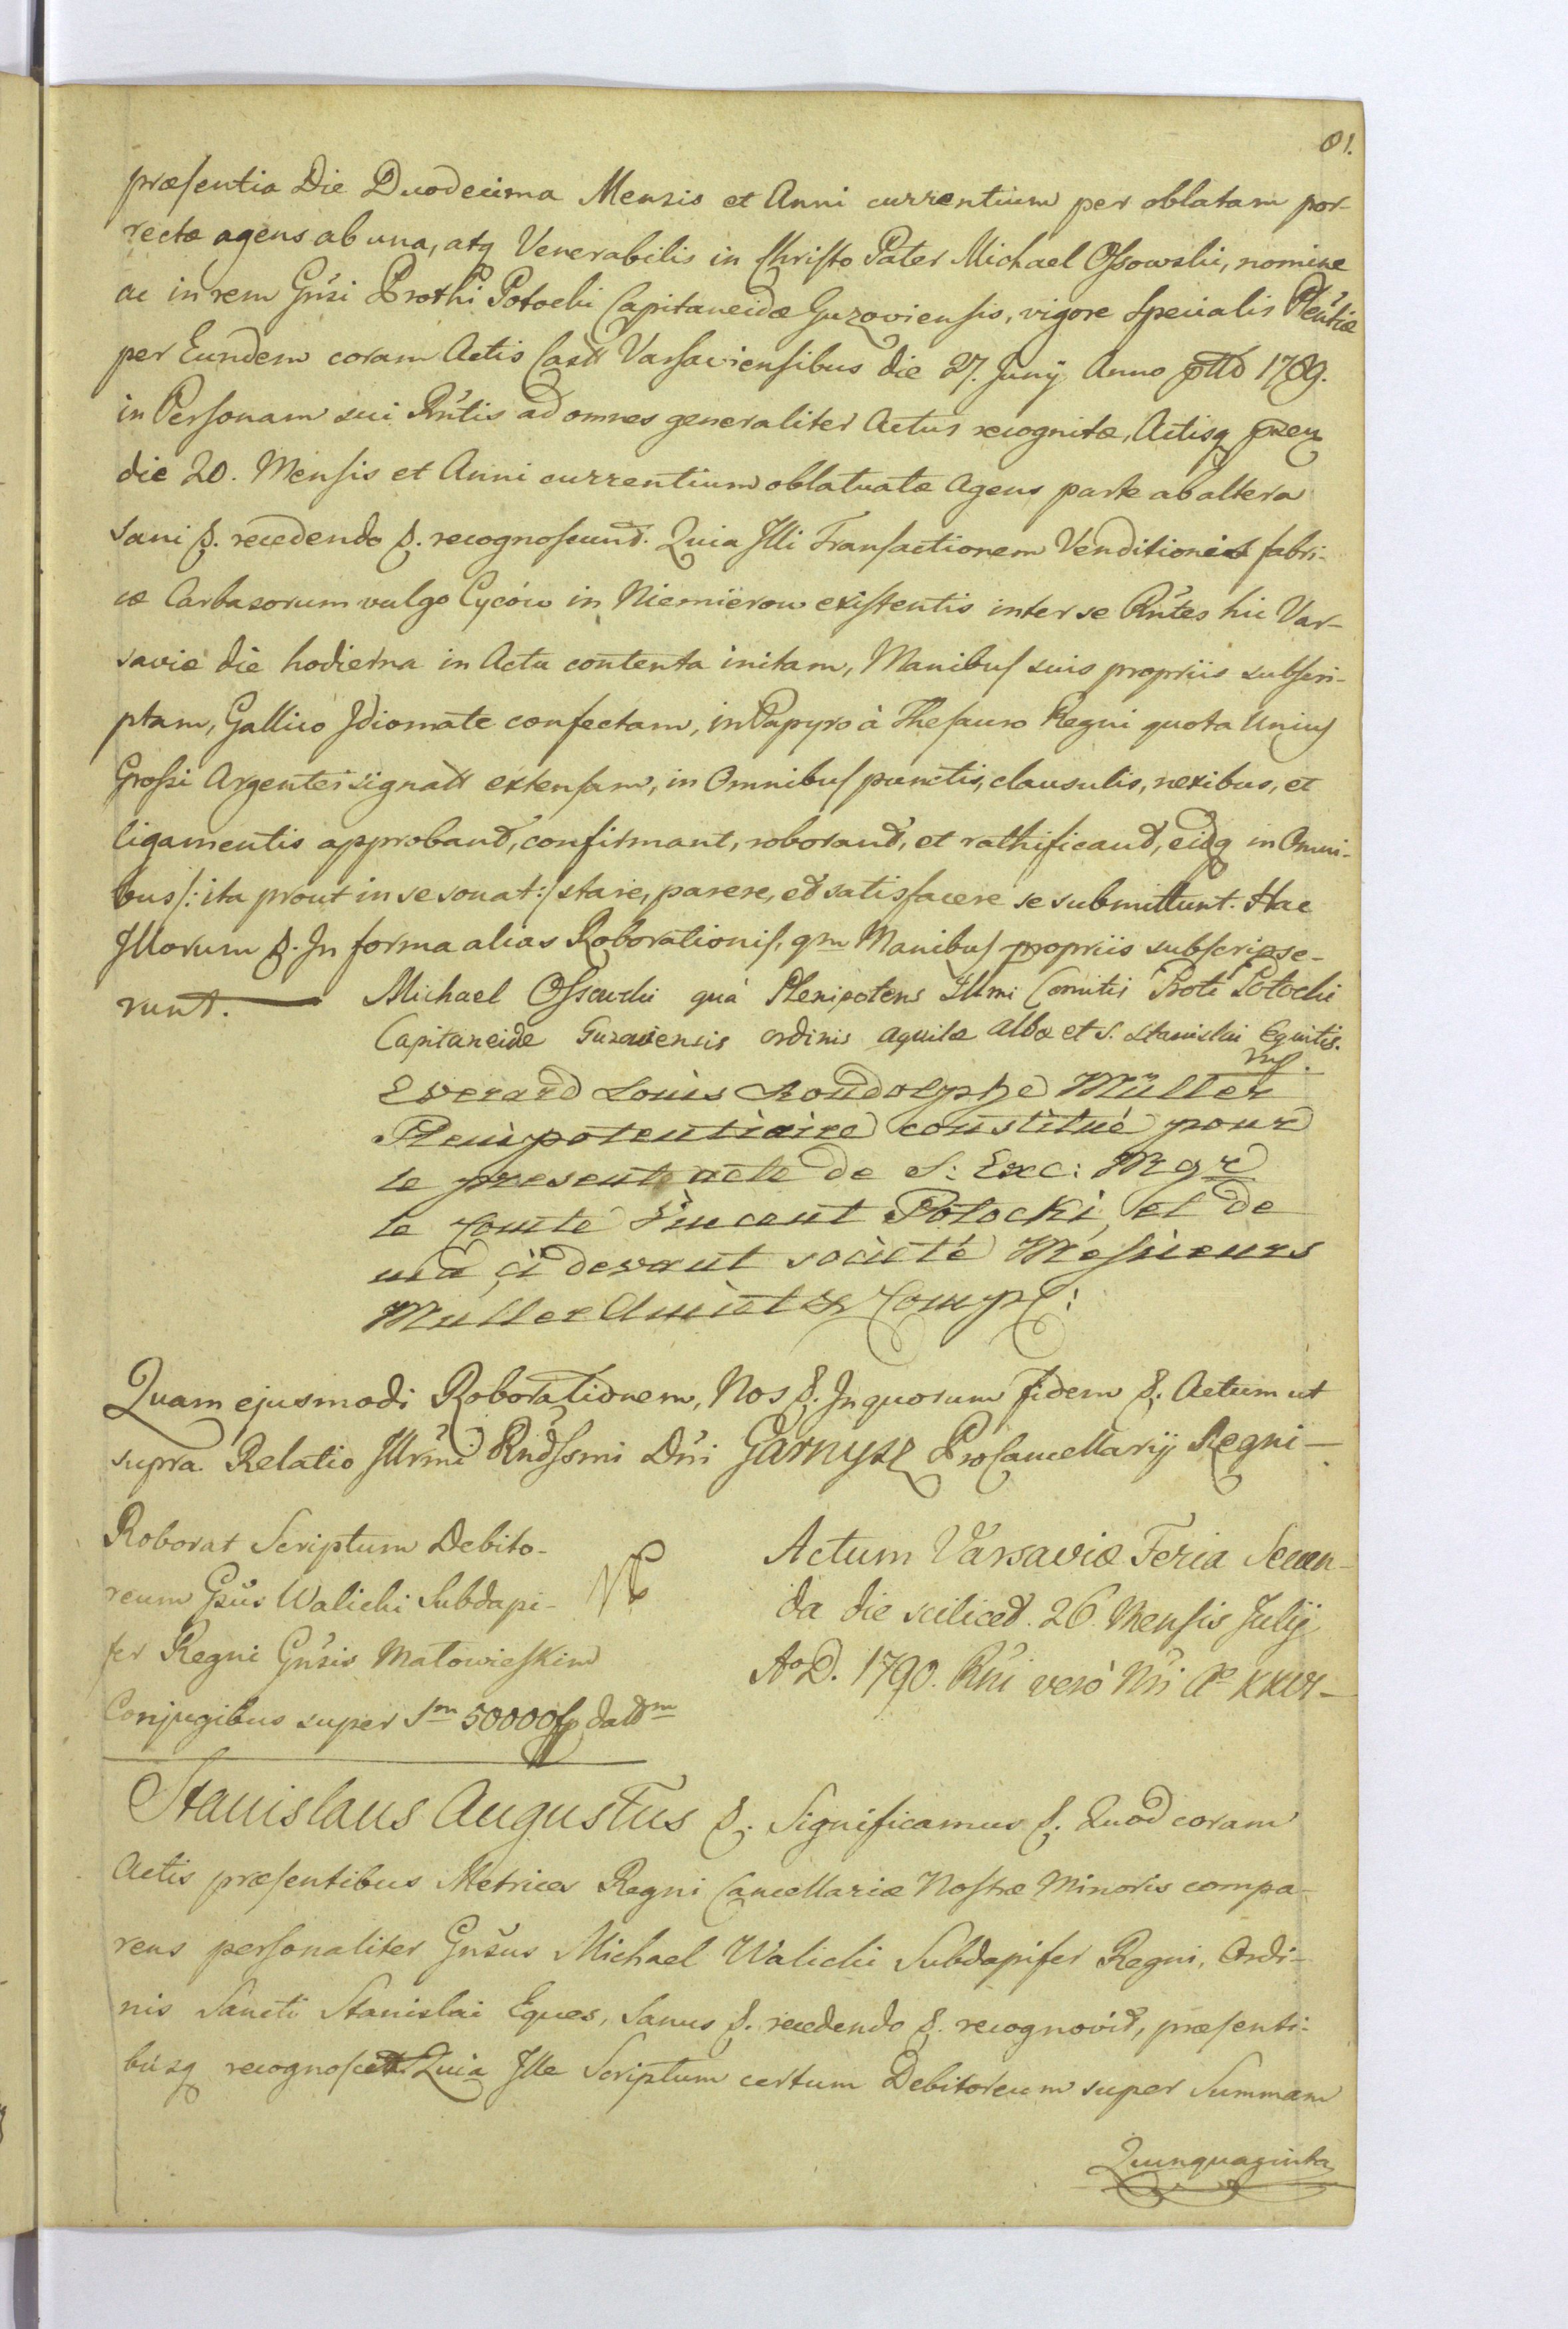 81.
præsentia Die Duodecima Mensis et Anni currentium per oblatam por-
rectæ agens ab una, atq Venerabilis in Christo Pater Michael Ossowski, nomine
ac in rem Gnsi Prothi Potocki Capitaneidæ Guzoviensis, vigore Specialis Pleñtiæ
per Eundem coram Actis Castt Varsaviensibus die 27. Junij Anno pttd 1789.
in Personam sui Rńtis ad omnes generaliter Actus recognitæ, Actisq
die 20. Mensis et Anni currentium oblatuatæ Agens parte ab altera
Sani &. recedendo &. recognoscunt. Quia Illi Transactionem Venditionis fabri-
cæ Carbasorum vulgo Cyców in Niemiërow existentis inter se Rńtes hic Var-
saviæ die hodierna in Actu contenta initam, Manibus suis propriis subscri-
ptam, Gallico Idiomate confectam, in Papyro à Thesauro Regni quota Unius
Grossi Argentei signatt extensam, in Omnibus punctis, clausulis, nexibus, et
ligamentis approband, confirmant, roborand, et rathificand, eidq in Omni-
bus /: ita prout in se sonat :/ stare, parere, et satisfacere se submittunt. Hac
Illorum &. In forma alias Roborationis, qm Manibus propriis subscripse-
runt. Michael Ossowski quà Plenipotens Illmi Comitis Proti Potocki
Capitaneide Guzoviensis ordinis aquilæ albæ et S. Stanislai Equitis.
mp.
Everard Louis Roudolphe Müller
Plenipotentiaire constitué pour
le present acte de S: Exc: Mgr
le Comte Vincent Potocki, et de
ma ci devant societé Messieurs
Muller Amiet & Comp:
Quam ejusmodi Roborationem, Nos &. In quorum fidem &. Actum ut
supra Relatio Illrmi Rndssmi Dńi Garnysz ProCancellarij Regni —
Roborat Scriptum Debito-
reum Gsus Walicki Subdapi-
fer Regni Gnsis Matowieskim
Conjugibus super Sm 50000 fp datm
Actum Varsaviæ Feria Secun-
da die scilicet. 26. Mensis Julij
AoD. 1790. Rńi verò Nri Ao XXVI —
Stanislaus Augustus &. Significamus &. Quod coram
Actis præsentibus Metrices Regni Cancellariæ Nostræ Minoris compa-
rens personaliter Gnsus Michael Walicki Subdapifer Regni, Ordi-
nis Sancti Stanislai Eques, Sanus &. recedendo &. recognovit, præsenti-
busq recognoscit Quia Ille Scriptum certum Debitoreum super Summam
Quinquaginta